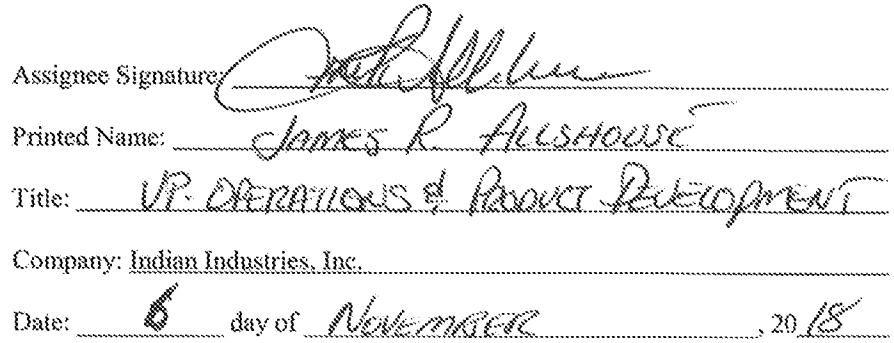 Assignee Signature:
Printed Name: JAMES R. ALLSHOUSE
Title: VP. OPERATIONS & PRODUCT DEVELOPMENT
Company: Indian Industries, Inc.
Date: 6 day of NOVEMBER, 2018